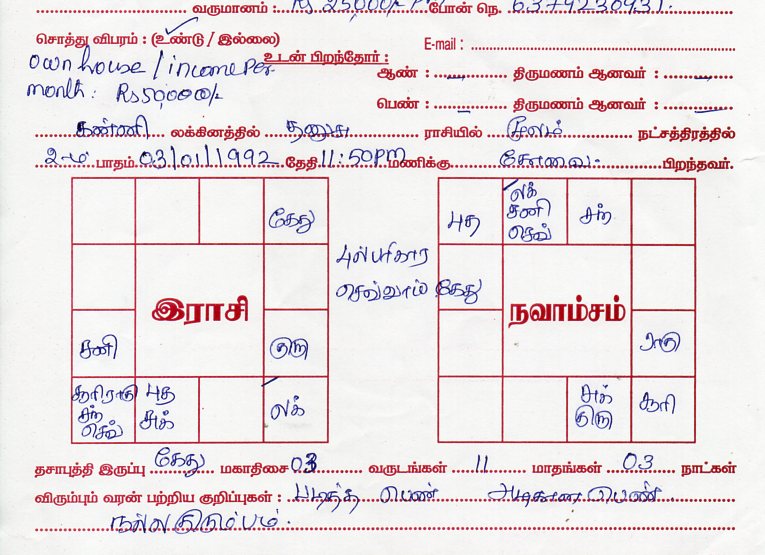 வருமானம் : Rs 25,000/- Pm போன் நெ. 6379230931.
சொத்து விபரம் : (உண்டு / இல்லை)
E-mail :
own house / income Per
உடன் பிறந்தோர் :
ஆண் : – திருமணம் ஆனவர் : –
month : Rs 50,000/-
பெண் : – திருமணம் ஆனவர் : –
கன்னி லக்கினத்தில் தனுசு ராசியில் மூலம் நட்சத்திரத்தில்
2-ம் பாதம் 03/01/1992 தேதி 11:50PM மணிக்கு கோவை பிறந்தவர்.
கேது
சனி
குரு
சூரி ராகு
சந்
செவ்
புத
சுக்
லக்
இராசி
செவ்வாய் கேது
புத
லக்
சனி
செவ்
சந்
ராகு
சுக்
குரு
சூரி
நவாம்சம்
தசாபுத்தி இருப்பு கேது மகாதிசை 03 வருடங்கள் 11 மாதங்கள் 03 நாட்கள்
விரும்பும் வரன் பற்றிய குறிப்புகள் : படித்த பெண் அழகான பெண்
நல்ல குடும்பம்.